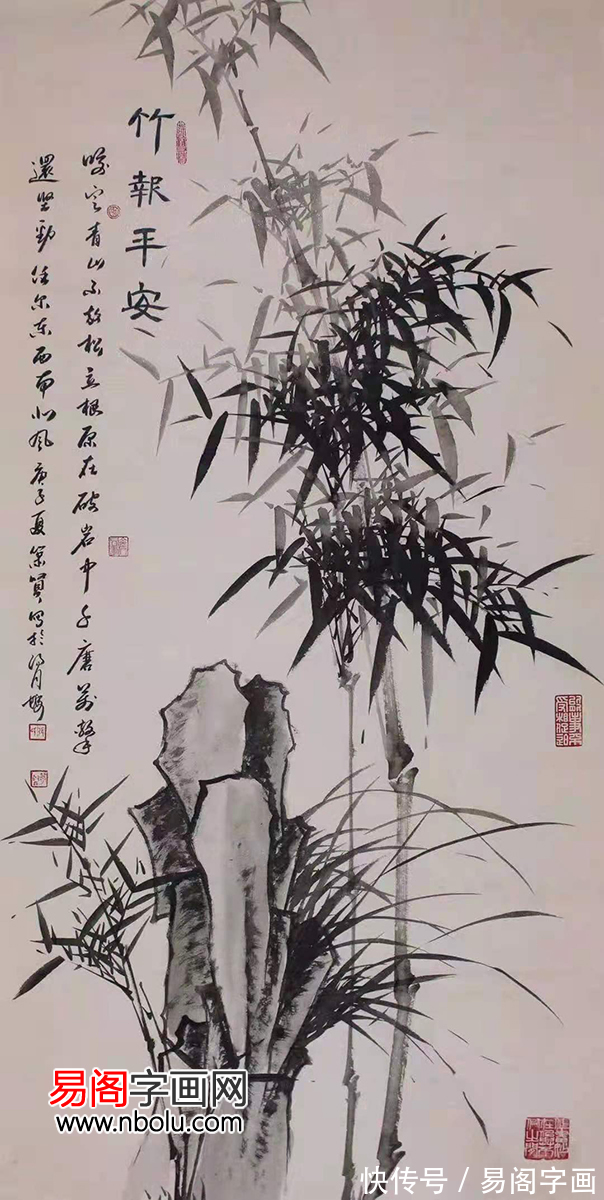 竹報平安
咬定青山不放松立根原在破岩中千磨萬擊
還坚勁任尔东西南北风庚子夏
易阁字画网
www.nbolu.com
快传号 / 易阁字画